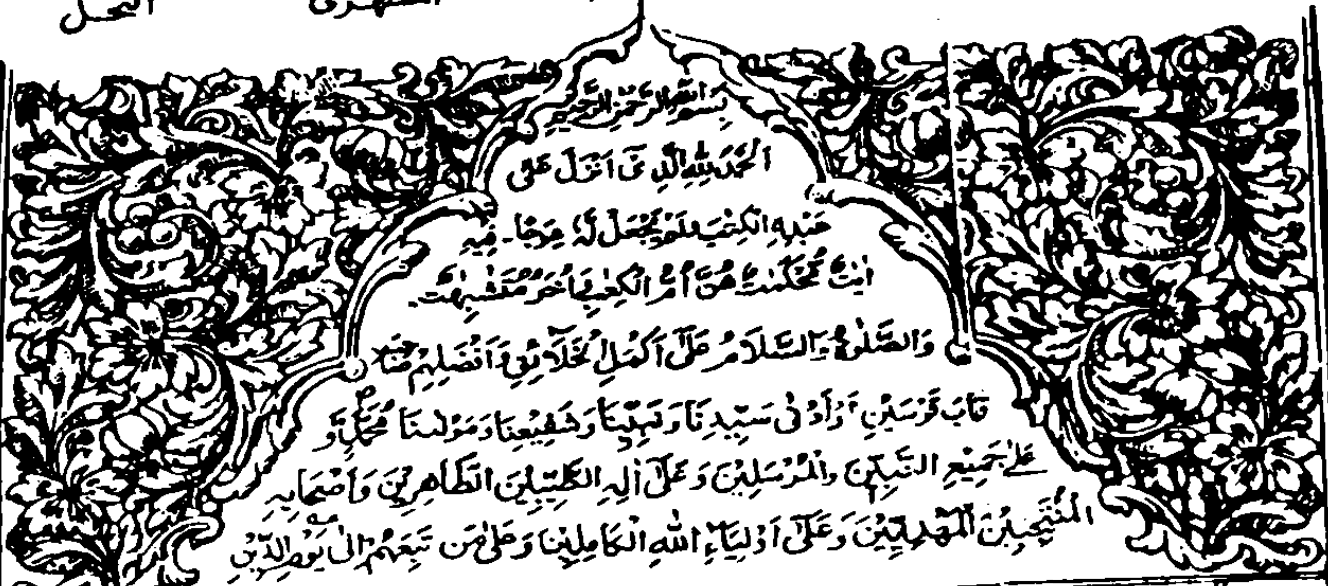 المظهرى النحل
بسم الله الرحمن الرحيم
اَلْحَمْدُ لِلّٰهِ الَّذِىْ اَنْزَلَ عَلٰى
عَبْدِهِ الْكِتٰبَ وَلَمْ يَجْعَلْ لَّهٗ عِوَجًا۔ فِيْهِ
اٰيٰتٌ مُّحْكَمٰتٌ هُنَّ اُمُّ الْكِتٰبِ وَاُخَرُ مُتَشٰبِهٰتٌ۔
وَالصَّلٰوةُ وَالسَّلَامُ عَلٰى اَكْمَلِ الْخَلَائِقِ وَاَفْضَلِهِمْ
قَابَ قَوْسَيْنِ اَوْ اَدْنٰى سَيِّدِنَا وَنَبِيِّنَا وَشَفِيْعِنَا وَمَوْلٰىنَا مُحَمَّدٍ وَّ
عَلٰى جَمِيْعِ النَّبِيّٖنَ وَالْمُرْسَلِيْنَ وَعَلٰى اٰلِهِ الطَّيِّبِيْنَ الطَّاهِرِيْنَ وَاَصْحَابِهِ
الْمُنْتَجَبِيْنَ الْمَهْدِيِّيْنَ وَعَلٰى اَوْلِيَاءِ اللّٰهِ الْكَامِلِيْنَ وَعَلٰى مَنْ تَبِعَهُمْ اِلٰى يَوْمِ الدِّيْنِ